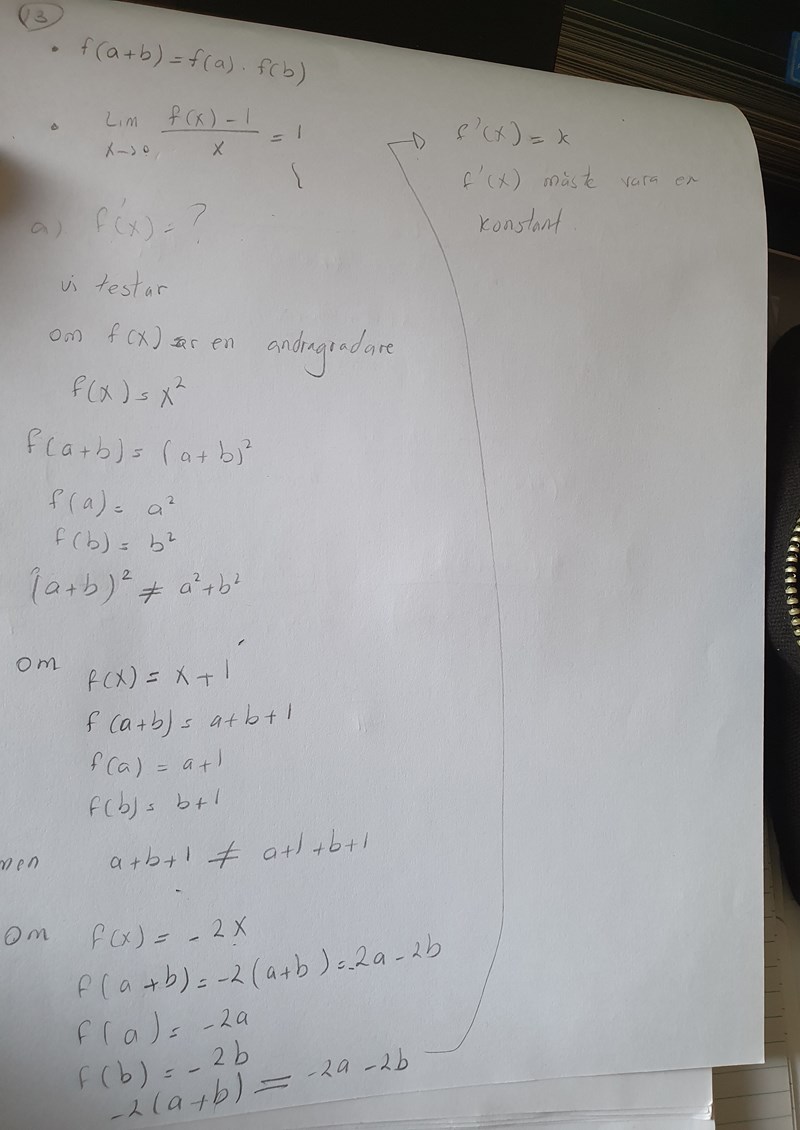 13
• f(a+b) = f(a) · f(b)
• Lim x→0 (f(x) - 1)/x = 1
a) f'(x) = ?
vi testar
om f(x) är en andragradare
f(x) = x²
f(a+b) = (a+b)²
f(a) = a²
f(b) = b²
(a+b)² ≠ a²+b²
om f(x) = x+1
f(a+b) = a+b+1
f(a) = a+1
f(b) = b+1
men a+b+1 ≠ a+1+b+1
om f(x) = -2x
f(a+b) = -2(a+b) = -2a-2b
f(a) = -2a
f(b) = -2b
-2(a+b) = -2a-2b
f'(x) = k
f'(x) måste vara en
konstant.